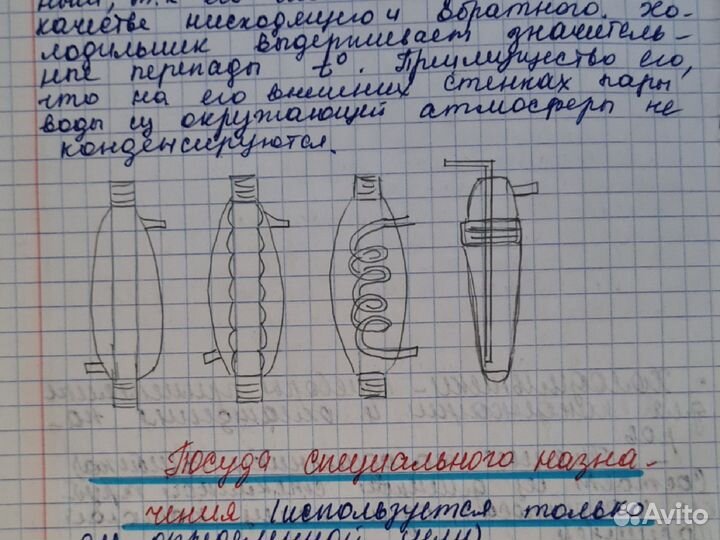 качестве нисходящего и обратного. Хо-
лодильник выдерживает значитель-
ные перепады t°. Преимущество его,
что на его внешних стенках пары
воды из окружающей атмосферы не
конденсируются.
Посуда специального назна-
чения (используется только
Avito